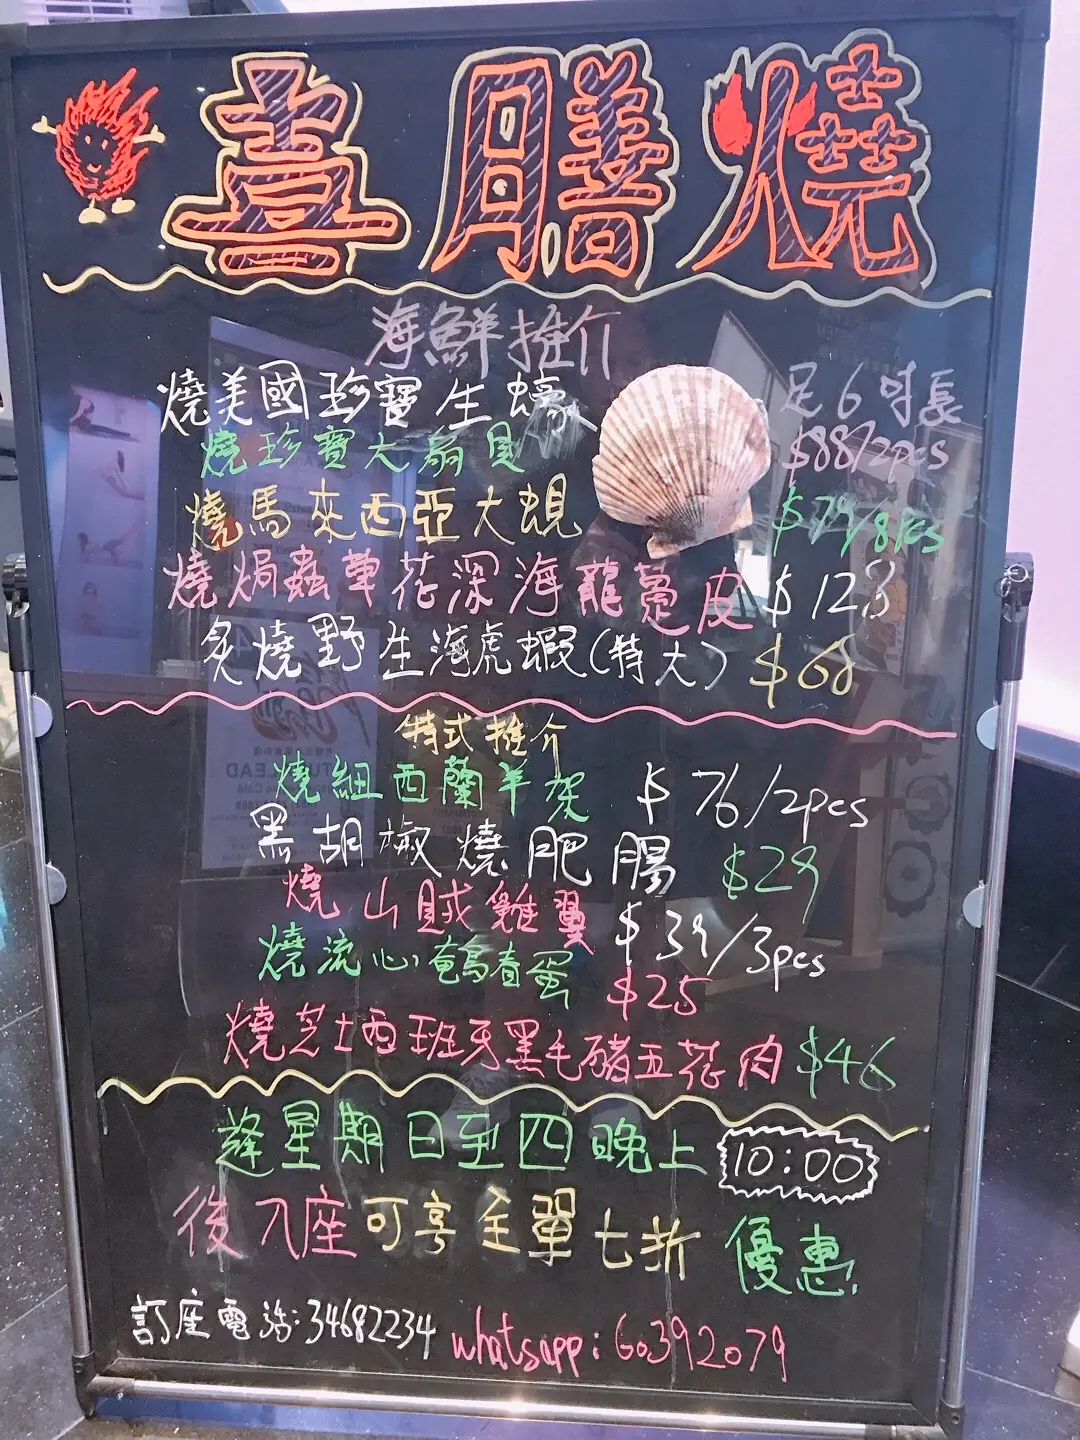 喜膳燒
海鮮推介
燒美國珍寶生蠔 足6吋長
燒珍寶大扇貝 $88/2pcs
燒馬來西亞大蜆 $79/8pcs
燒焗蟲草花深海龍躉皮 $128
炙燒野生海虎蝦(特大) $68
特式推介
燒紐西蘭羊架 $76/2pcs
黑胡椒燒肥腸 $29
燒山賊雞翼 $39/3pcs
燒流心鵪春蛋 $25
燒芝士西班牙黑毛豬五花肉 $46
逢星期日至四晚上 10:00
後入座可享全單七折優惠
訂座電話:34682234 whatsapp:60392079